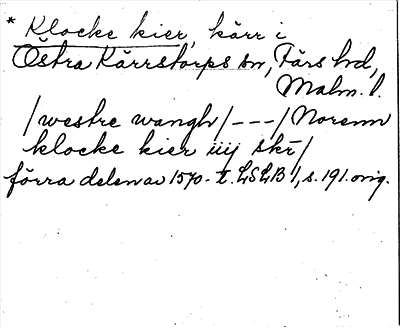 * Klocke kier, kärr i
Östra Kärrstorps sn, Färs hd,
Malm. l.
/westre wangh/ - - - / Norenn
klocke kier iiij skr̄/
förra delen av 1570-t. LSLB 1, s. 191. orig.